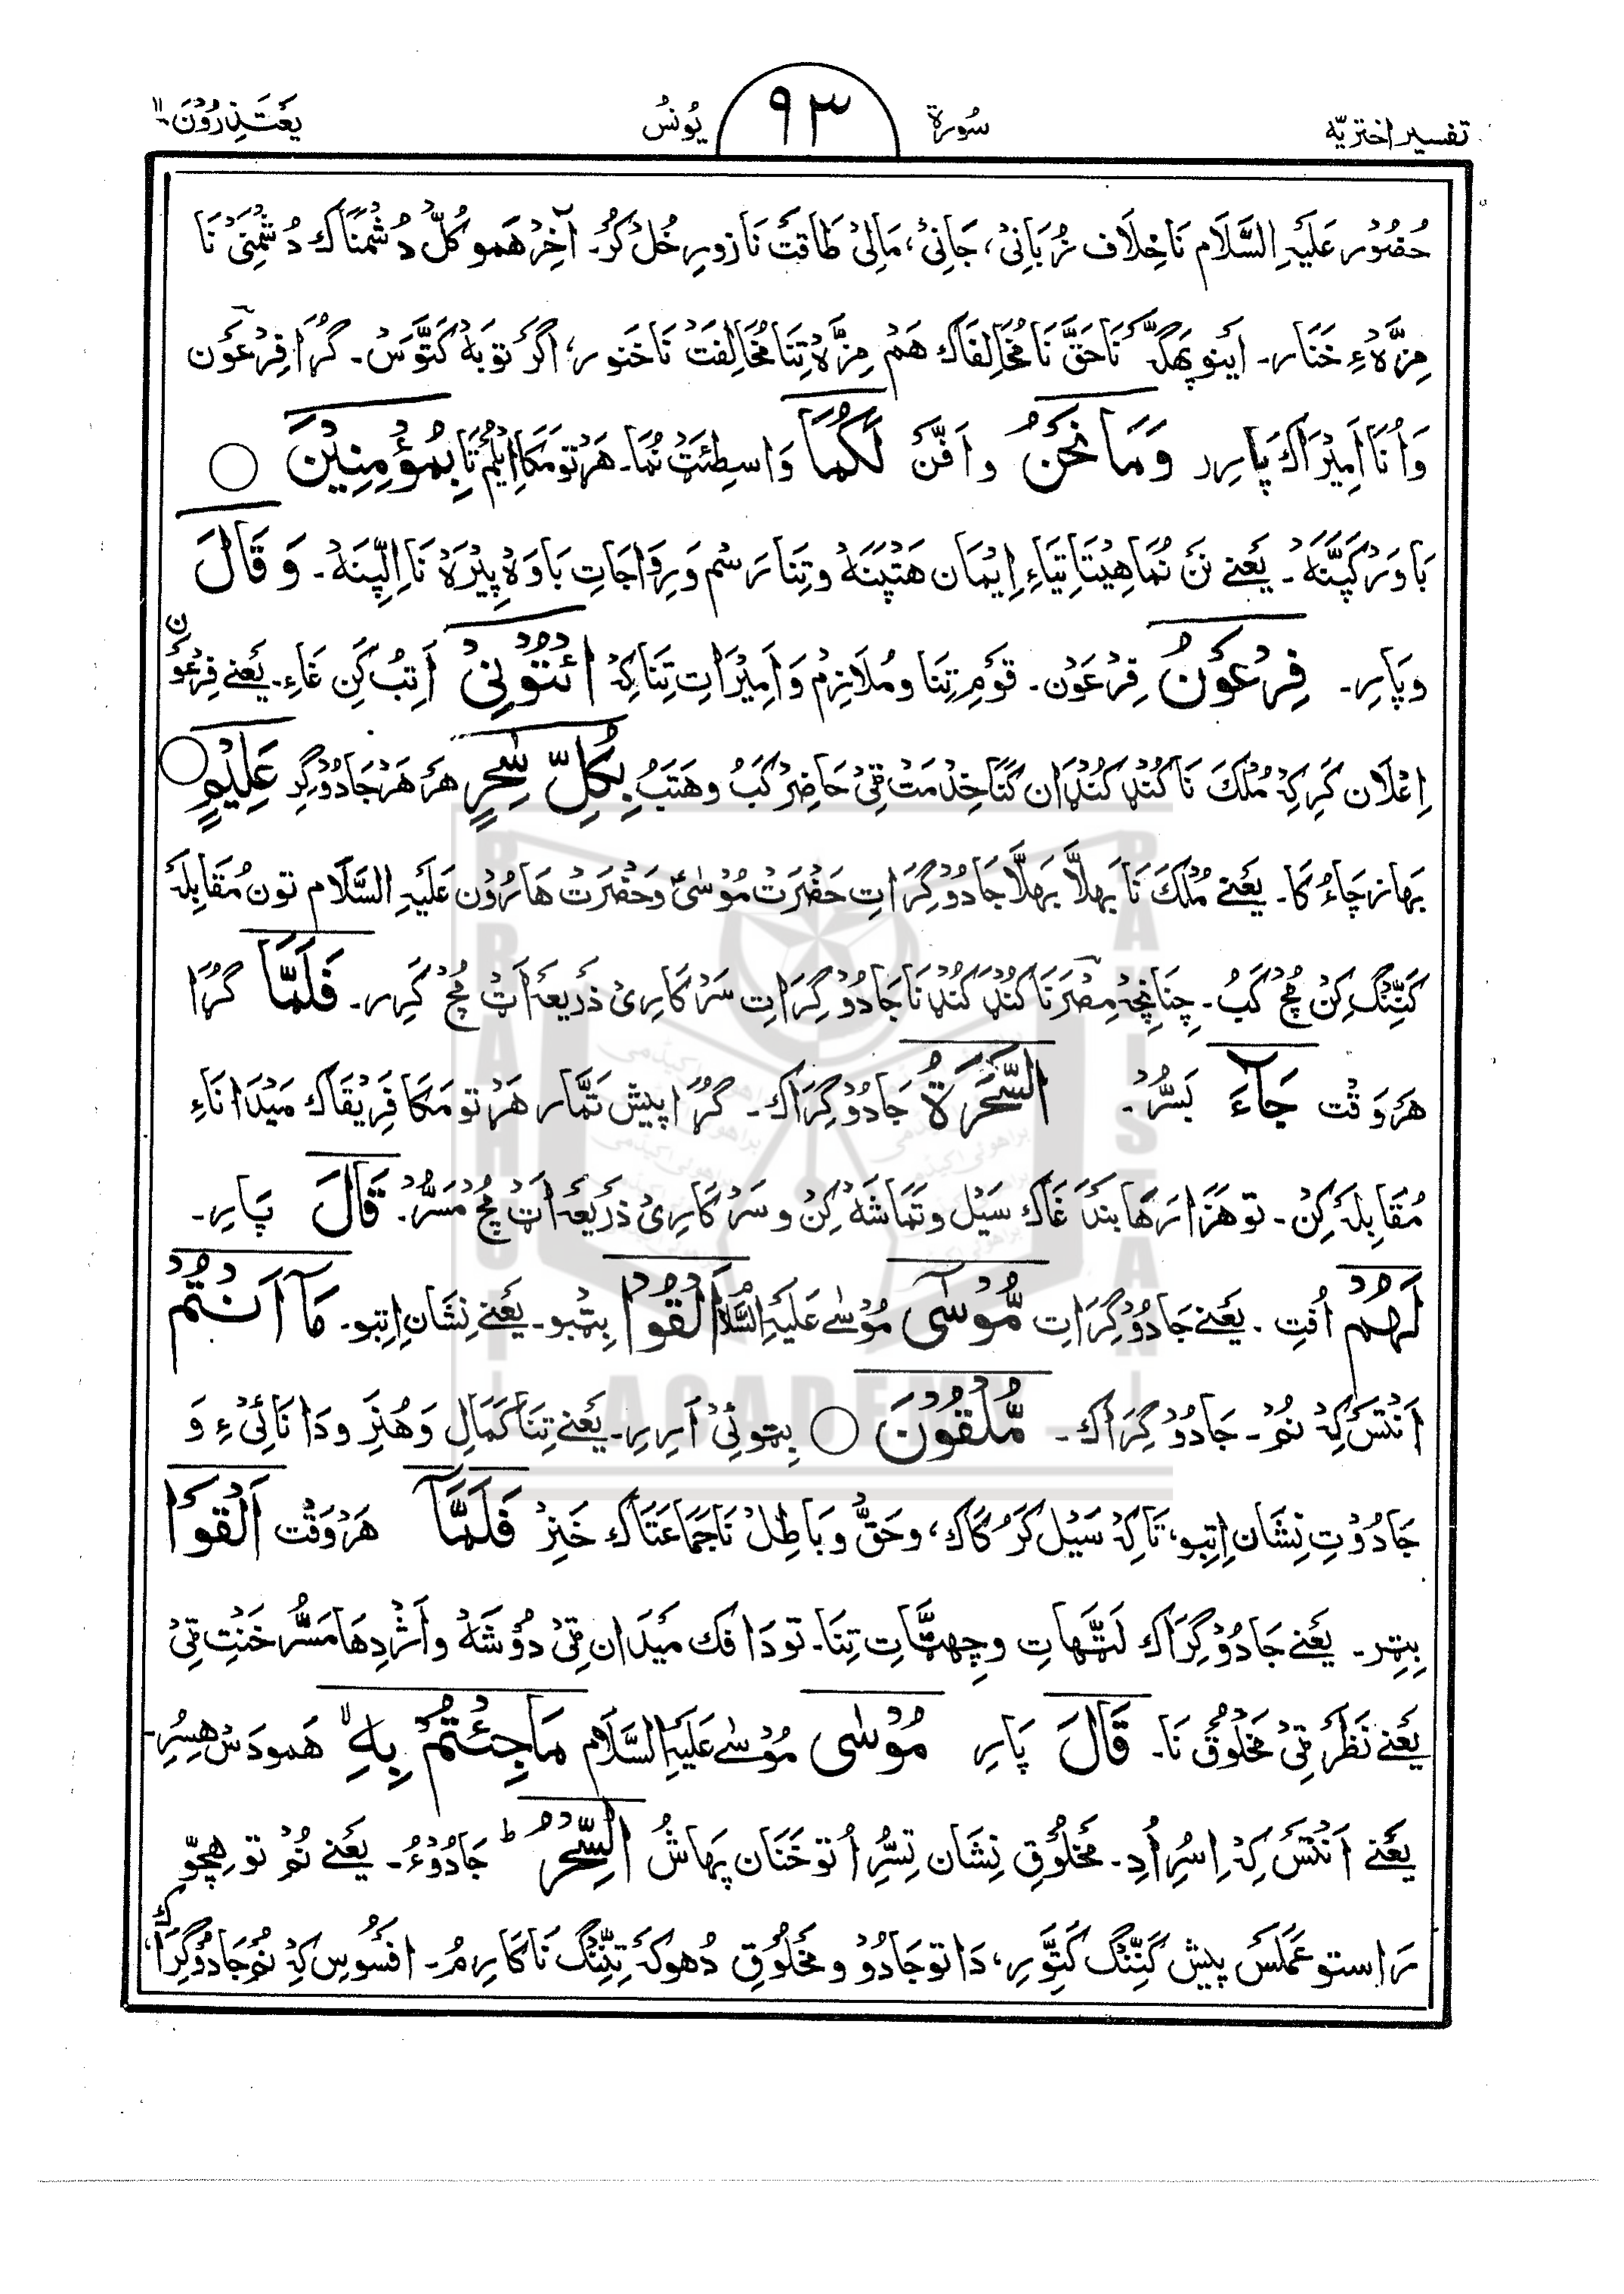 تفسیر اختریّه سُورة ۹۳ یُونسُ یَعۡتَذِرُوۡنَ ۱۱
حُضُوۡر عَلَیۡہِ السَّلَام نَا خِلَاف زُبَانِیۡ، جَانِیۡ، مَالِیۡ طَاقتَ نَا زورِ خُلۡ کُرُ۔ آخِرۡ ھَمو کُلّ دُشۡمَنَاک دُشۡمَنِیۡ نَا
مِزَّہۡءِ خَنَار۔ اَینو پَھگَّ نَا حَقَّ نَا مُخَالِفَاک ھَمۡ مِزَّہۡ تِنَا مُخَالِفَتۡ نَا خَنور، اَگَرۡ توبَہۡ کَتَّوَسۡ۔ گُرَا فِرۡعَوۡن
وَ اُنَا اَمِیۡرَاک پَارِر وَمَا نَحۡنُ و اَفَّنۡ لَکُمَا وَاسِطِئَتۡ نُمَا۔ ھَرۡتومَکَا اِیۡلُمۡتَا بِمُؤۡمِنِیۡنَ ○
بَاوَرۡ کَپَّنَہۡ۔ یَعۡنے نَنۡ نُمَا ھِیۡتَاتِیَاءِ اِیۡمَان ھَتَپَنَہۡ و تِنَا رَسۡم وَ رِوَاجَاتِ بَاوَہۡ پِیۡرَہۡ نَا اِلَّپِنَہۡ۔ وَقَالَ
و پَارِ۔ فِرۡعَوۡنُ فِرۡعَوۡن۔ قَوۡمِ تِنَا و مُلَازِمۡ وَ اَمِیۡرَاتِ تِنَا کِہۡ ائۡتُوۡنِیۡ اَتِبُ کَنِ غَاءِ۔ یَعۡنے فِرۡعَوۡن
اِعۡلَان کَرِ کِہۡ مُلۡکَ نَا کُنۡڈ کُنۡڈَان کَنَا خِدۡمَتۡ ٹِیۡ حَاضِرۡ کَبُ و ھَتَبُ بِکُلِّ سٰحِرٍ ھَرۡ ھَرۡ جَادُوۡگِرِ عَلِیۡمٍ ○
بَھازچَاءُ کَا۔ یَعۡنے مُلۡکَ نَا بَھلَّا بَھلَّا جَادُوۡگِرَاتِ حَضۡرَتۡ مُوۡسٰی وَحَضۡرَتۡ ھَارُوۡن عَلَیۡہِ السَّلَام تون مُقَابِلَہۡ
کَنِّنۡگ کِنۡ مُچۡ کَبُ۔ چِنَانِچَہۡ مِصۡرَ نَا کُنۡڈ کُنۡڈ نَا جَادُوۡگِرَاتِ سَرۡکَارِیۡ ذَرِیعَہۡ اَٹۡ مُچۡ کَرِر۔ فَلَمَّا گُرَا
ھَرۡوَقۡت جَآءَ بَسُّرۡ۔ السَّحَرَۃُ جَادُوۡگِرَاک۔ گُرَا پیشِ تَمَّار ھَرۡتومَکَا فَرِیۡقَاک مَیۡدَانَاءِ
مُقَابِلَہۡ کِنۡ۔ تو ھَزَارَھَا بَنۡدَ غَاک سَیۡل و تَمَاشَہۡ کِنۡ و سَرۡکَارِیۡ ذَرِیۡعَہۡ اَٹۡ مُچۡ مَسُّرۡ۔ قَالَ پَارِ۔
لَہُمۡ اُفتِ۔ یَعۡنے جَادُوۡگِرَاتِ مُّوۡسٰٓی مُوۡسٰے عَلَیۡہِ السَّلَام اَلۡقُوۡا بِٹبو۔ یَعۡنے نِشَان اِتِبو۔ مَآ اَنۡتُمۡ
اَنۡتَسۡ کِہۡ نُمۡ۔ جَادُوۡگِرَاک۔ مُّلۡقُوۡنَ ○ بِٹوئِیۡ اَرِرِ۔ یَعۡنے تِنَا کَمَالِ وَ ھُنَرِ و دَانَائِیۡءِ وَ
جَادُوۡتِ نِشَان اِتِبو، تَاکِہۡ سَیۡل کَرۡکَاک، و حَقُّ و بَاطِلۡ نَا جَمَاعَتَاک خَنِرۡ فَلَمَّآ ھَرۡوَقۡت اَلۡقَوۡا
بِٹِر۔ یَعۡنے جَادُوۡگِرَاک لَٹَّھاتِ و چِھٹَّاتِ تِنَا۔ تو دَافک مَیۡدَان ٹِیۡ دُوۡشَہۡ و اَژۡدِھَا مَسُّرۡ خَنۡتِ ٹِیۡ
یَعۡنے نَظَرۡ ٹِیۡ مَخۡلُوۡقۡ نَا۔ قَالَ پَارِ مُوۡسٰی مُوۡسٰے عَلَیۡہِ السَّلَام مَا جِئۡتُمۡ بِہِ ۙ ھَمودَسۡ ھِسُرِ۔
یَعۡنے اَنۡتَسۡ کِہۡ اِسُرِ اُدِ۔ مَخۡلُوۡقِ نِشَان تِسُّرِ اُتو خَنَان پھاشُ السِّحۡرُ ؕ جَادُوۡءُ۔ یَعۡنے نُمۡ تو ھِچّو
رَاستو عَمَلَسۡ پیش کَنِّنۡگ کَتَّوِرِ، دَاتو جَادُوۡ و مَخۡلُوۡقِ دُھوکَہۡ تِنِّنۡگ نَا کَارِمُ۔ افسُوس کِہۡ نُمۡ جَادُوۡگِرَاک
BRAHUI ACADEMY BALUCHISTAN
براھوئی اکیڈمی